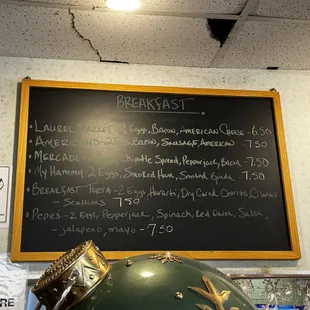 BREAKFAST
• LAUREL MARKET - 2 EGGS, BACON, AMERICAN CHEESE - 6.50
• AMERICANO - 2 EGGS, BACON, SAUSAGE, AMERICAN - 7.50
• MERCADO - CHIPOTLE SPREAD, PEPPERJACK, BACON - 7.50
• MY HAMMY - 2 EGGS, SMOKED HAM, SMOKED GOUDA - 7.50
• BREAKFAST TORTA - 2 EGGS, HAVARTI, DRY CURED CHORIZO,
- SCALLIONS 7.50
• PEPE'S - 2 EGGS, PEPPERJACK, SPINACH, RED ONION, SALSA,
- JALAPEÑO, MAYO - 7.50
RE